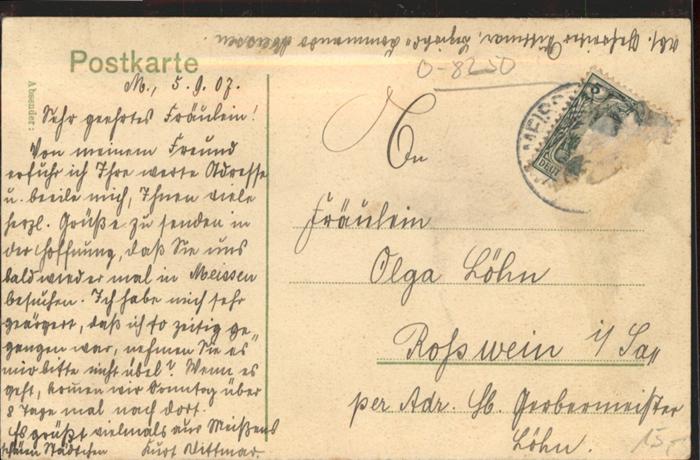 Abs. Gefreiter Dittmar, Bezirks-Kommando Meissen.
Postkarte
O-8250
Absender:
M., 5.9.07.
Sehr geehrtes Fräulein!
Von meinem Freund
erfuhr ich Ihre werte Adresse
u. beeile mich, Ihnen viele
herzl. Grüße zu senden in
der Hoffnung, daß Sie uns
bald wieder mal in Meissen
besuchen. Ich habe mich sehr
geärgert, daß ich so zeitig ge-
gangen war, nehmen Sie es
mir bitte nicht übel? Wenn es
geht, kommen wir Sonntag über
8 Tage mal nach dort.
Es grüßt vielmals aus Meißens
schönen Städtchen Kurt Dittmar.
MEISS
5
DEUT
An
Fräulein
Olga Löhn
Roßwein i/Sa„
per Adr. Hb. Gerbermeister
Löhn.
15,-